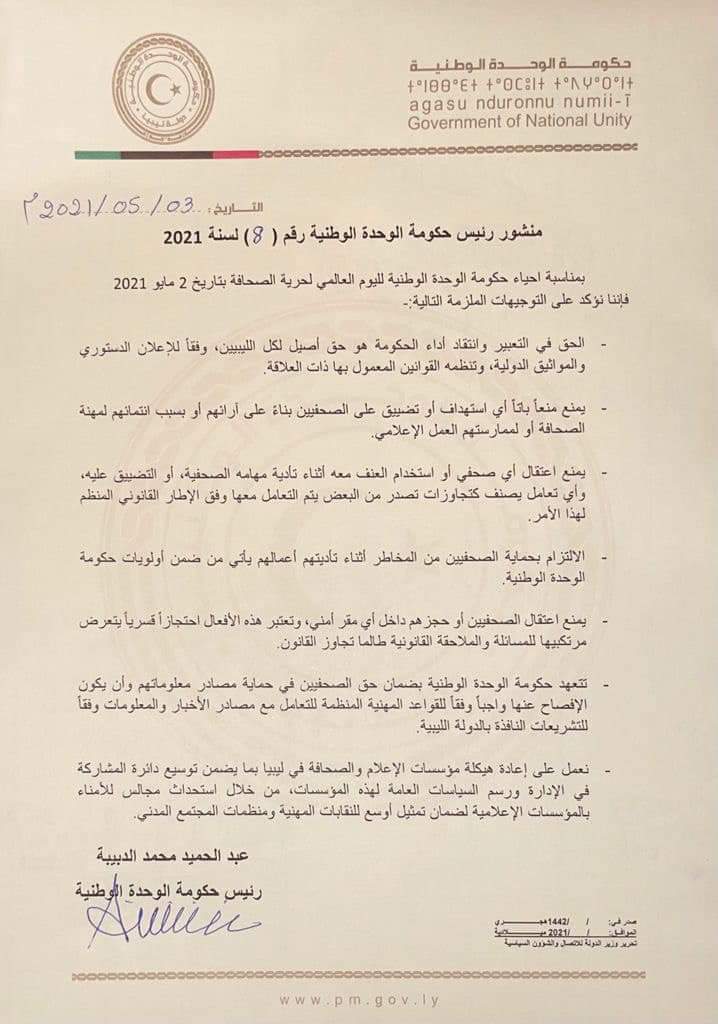 حكومة الوحدة الوطنية
agasu nduronnu numii-ī
Government of National Unity
حكومة الوحدة الوطنية
دولة ليبيا
التاريخ: 2021/05/03 م
منشور رئيس حكومة الوحدة الوطنية رقم ( 8 ) لسنة 2021
بمناسبة احياء حكومة الوحدة الوطنية لليوم العالمي لحرية الصحافة بتاريخ 2 مايو 2021
فإننا نؤكد على التوجيهات الملزمة التالية:-
- الحق في التعبير وانتقاد أداء الحكومة هو حق أصيل لكل الليبيين، وفقاً للإعلان الدستوري
والمواثيق الدولية، وتنظمه القوانين المعمول بها ذات العلاقة.
- يمنع منعاً باتاً أي استهداف أو تضييق على الصحفيين بناءً على آرائهم أو بسبب انتمائهم لمهنة
الصحافة أو لممارستهم العمل الإعلامي.
- يمنع اعتقال أي صحفي أو استخدام العنف معه أثناء تأدية مهامه الصحفية، أو التضييق عليه،
وأي تعامل يصنف كتجاوزات تصدر من البعض يتم التعامل معها وفق الإطار القانوني المنظم
لهذا الأمر.
- الالتزام بحماية الصحفيين من المخاطر أثناء تأديتهم أعمالهم يأتي من ضمن أولويات حكومة
الوحدة الوطنية.
- يمنع اعتقال الصحفيين أو حجزهم داخل أي مقر أمني، وتعتبر هذه الأفعال احتجازاً قسرياً يتعرض
مرتكبيها للمسائلة والملاحقة القانونية طالما تجاوز القانون.
- تتعهد حكومة الوحدة الوطنية بضمان حق الصحفيين في حماية مصادر معلوماتهم وأن يكون
الإفصاح عنها واجباً وفقاً للقواعد المهنية المنظمة للتعامل مع مصادر الأخبار والمعلومات وفقاً
للتشريعات النافذة بالدولة الليبية.
- نعمل على إعادة هيكلة مؤسسات الإعلام والصحافة في ليبيا بما يضمن توسيع دائرة المشاركة
في الإدارة ورسم السياسات العامة لهذه المؤسسات، من خلال استحداث مجالس للأمناء
بالمؤسسات الإعلامية لضمان تمثيل أوسع للنقابات المهنية ومنظمات المجتمع المدني.
عبد الحميد محمد الدبيبة
رئيس حكومة الوحدة الوطنية
صدر في: / /1442 هجري
الموافق: / /2021 ميلادية
تحرير وزير الدولة للاتصال والشؤون السياسية
www.pm.gov.ly